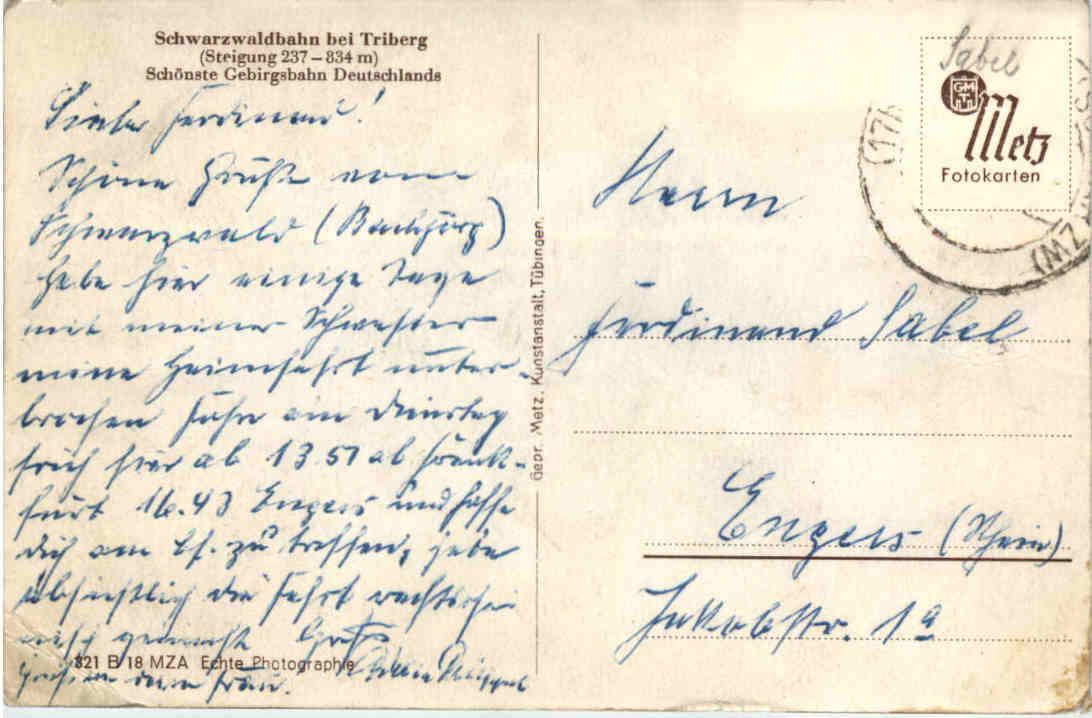 Schwarzwaldbahn bei Triberg
(Steigung 237–834 m)
Schönste Gebirgsbahn Deutschlands
Lieber Ferdinand!
Schöne Grüße vom
Schwarzwald
habe hier einige Tage
mit meiner Schwester
meine Heimfahrt unter-
brochen Fahre am Dienstag
früh hier ab 13.51 ab Frank-
furt 16.43 Engers und hoffe
dich am Bf. zu treffen, habe
absichtlich die Fahrt
gemacht Gruß
deine Frau.
321 B/18 MZA Echte Photographie
Gepr. Metz, Kunstanstalt, Tübingen.
Sabel
GMT
Metz
Fotokarten
(17
(MZ
Herrn
Ferdinand Sabel
Engers (Rhein)
Jakobstr. 1a